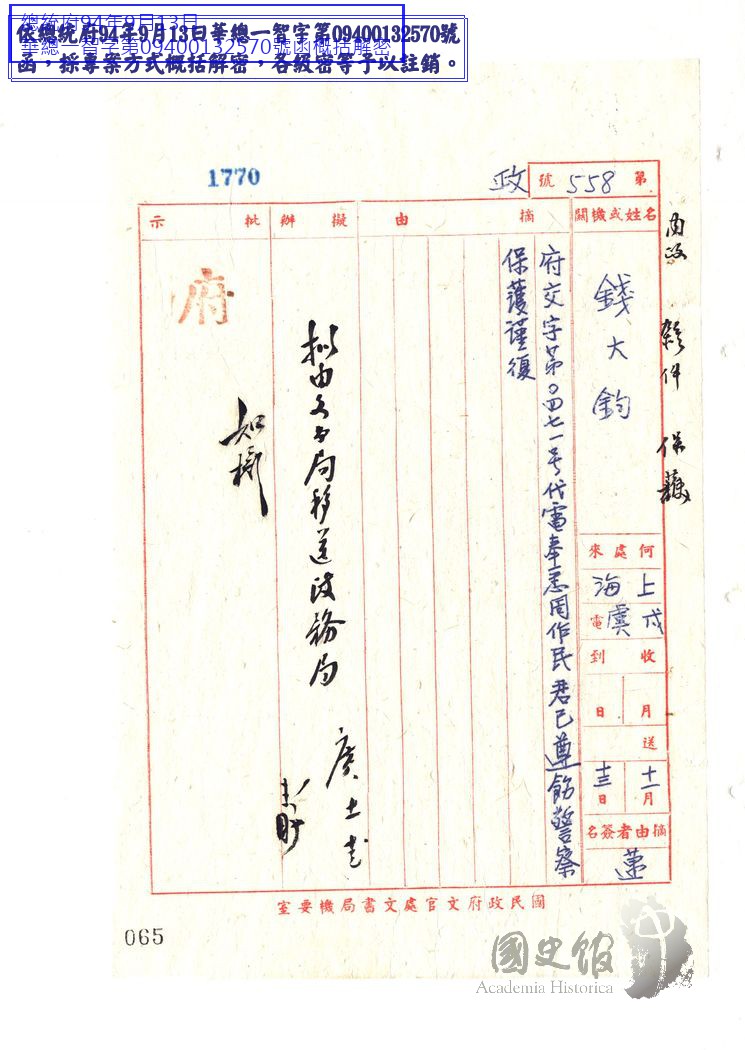 總統府94年9月13日
華總一智字第09400132570號函概括解密
依總統府94年9月13日華總一智字第09400132570號
函，採專案方式概括解密，各級密等予以註銷。
1770
政
第558號
姓名或機關
摘由
擬辦
批示
錢大鈞
府交字第〇四七一号代電奉悉周作民君已遵飭警察
保護謹復
擬由文書局移送政務局
知機
府
保護
何處來
上海
戌虞電
收到
月
日
送
十一月
十三日
摘由者簽名
蓮
國民政府文官處文書局機要室
065
國史館
Academia Historica